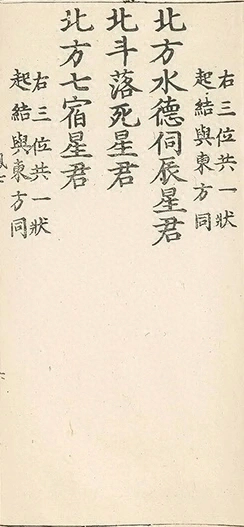 右三位共一狀
起結與東方同
北方水德伺辰星君
北斗落死星君
北方七宿星君
右三位共一狀
起結與東方同